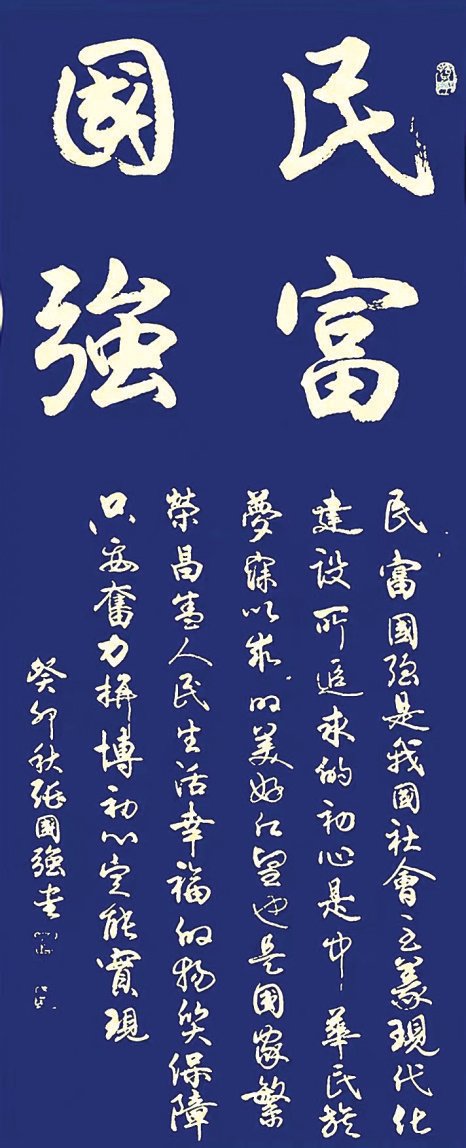 民富
國強
民富國强是我國社會主義現代化
建设所追求的初心是中華民族
夢寐以求的美好望也是國家繁
榮昌盛人民生活幸福的物质保障
只要奮力拼博初心定能實現
癸卯秋張國強书